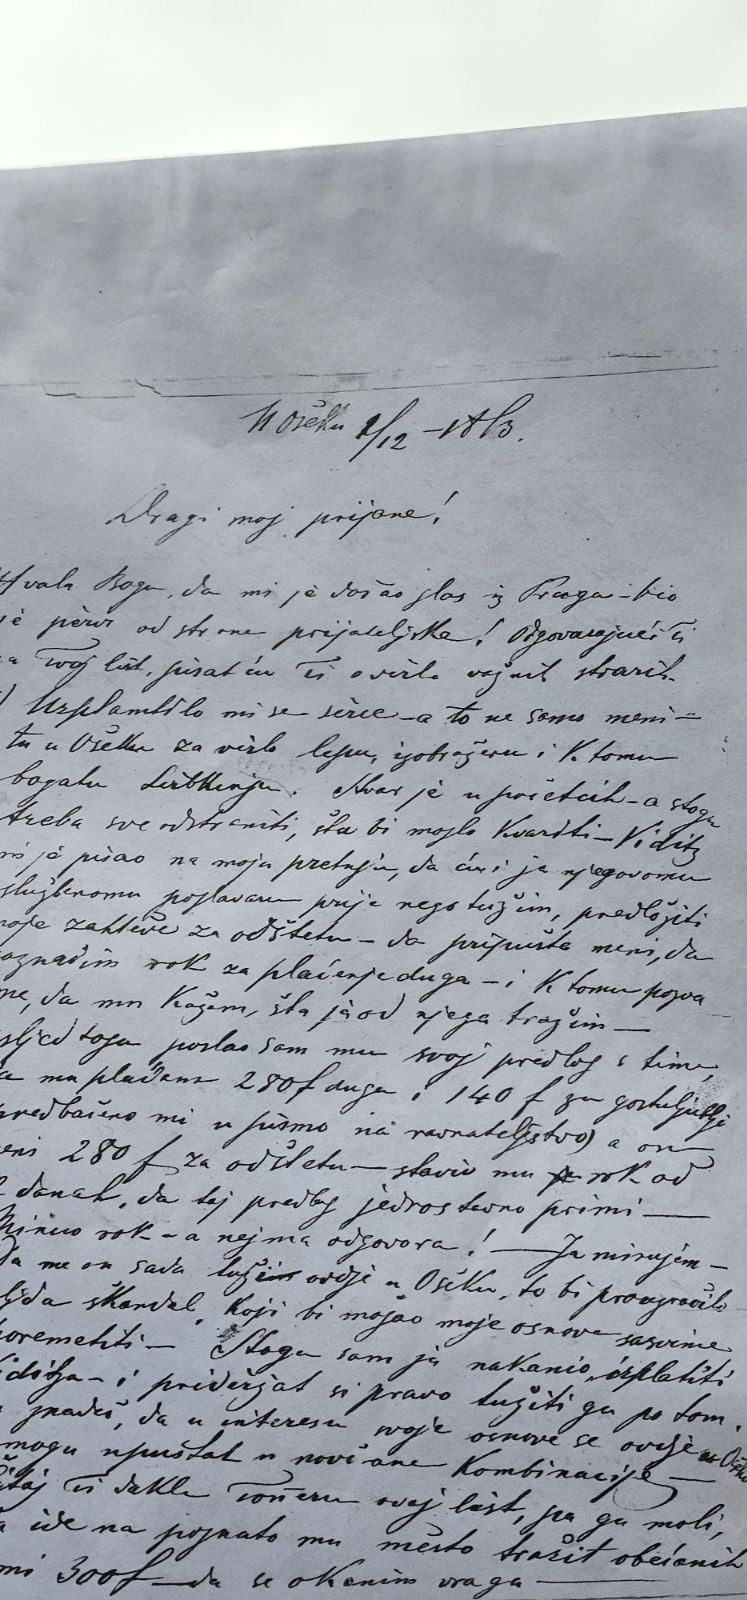 U Oseku 1/12 - 1873.
Dragi moj prijane!
Hvala Bogu, da mi je došao glas iz Praga - bio
je pèrvi od strane prijateljske! Odgovarajući ti
na tvoj list, pisat ću ti o vèrlo važnih stvarih.
Uzplamtilo mi se sèrce - a to ne samo meni -
tu u Oseku za vèrlo lepu, izobraženu i k tomu
bogatu Stvar je u početcih - a stoga
treba sve odstraniti, šta bi moglo kvariti -
mi je pisao na moju pretnju, da ću i ja njegovomu
službenomu poglavaru prije nego tužim, predložiti
moje zahteve za odštetu - da pripušta meni, da
označim rok za plaćenje duga - i k tomu pozva
me, da mu kažem, šta ja od njega tražim —
usljed toga poslao sam mu svoj predlog s time,
da mu plaćam 280 f duga i 140 f za gostoljublje
predbačeno mi u pismo na ravnateljstvo) a on
meni 280 f za odštetu — staviv mu rok od
danah, da taj predlog jednostavno primi —
Minuo rok - a nejma odgovora! — Ja mirujem -
Da me on sada tuži ovdje u Oseku, to bi prouzročilo
škandal, koji bi mogao moje osnove sasvime
poremetiti - Stoga sam ja nakanio izplatiti
- i pridèržat si pravo tužiti ga po tom.
znadeš, da u interesu moje osnove se ovdje u Oseku
mogu upuštat u novčane kombinacije —
ti dakle ovaj list, pa ga moli,
da ide na poznato mu mèsto tražit obećanih
mi 300 f — da se okanim vraga —